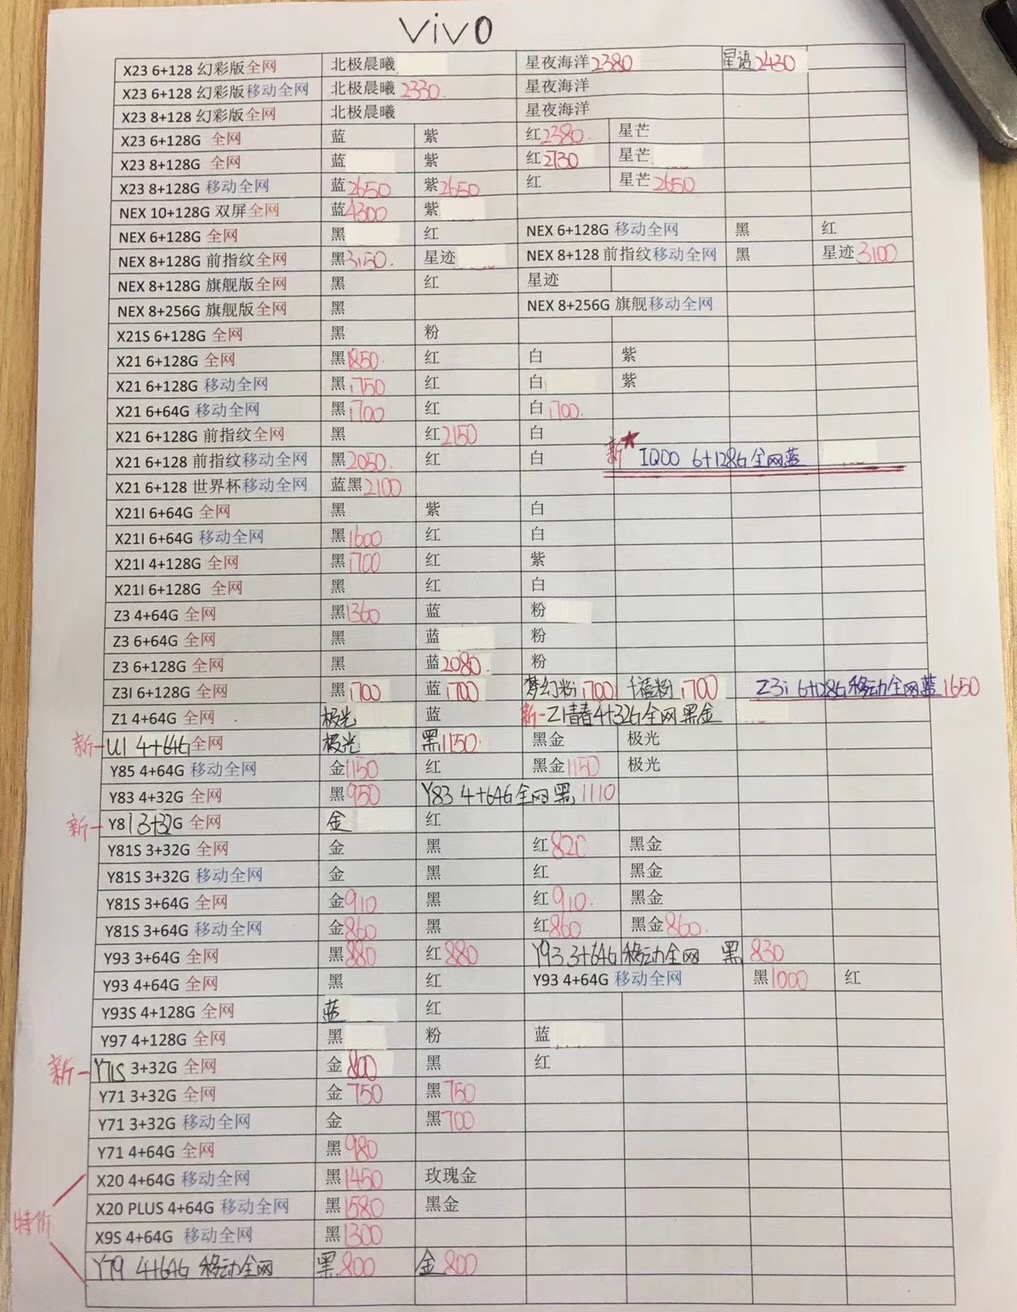 vivo
X23 6+128 幻彩版全网 北极晨曦 星夜海洋2380 星语2430
X23 6+128 幻彩版移动全网 北极晨曦2330. 星夜海洋
X23 8+128 幻彩版全网 北极晨曦 星夜海洋
X23 6+128G 全网 蓝 紫 红2380. 星芒
X23 8+128G 全网 蓝 紫 红2730 星芒
X23 8+128G 移动全网 蓝2650 紫2650 红 星芒2650
NEX 10+128G 双屏全网 蓝4300 紫
NEX 6+128G 全网 黑 红 NEX 6+128G 移动全网 黑 红
NEX 8+128G 前指纹全网 黑3150. 星迹 NEX 8+128 前指纹移动全网 黑 星迹3100
NEX 8+128G 旗舰版全网 黑 红 星迹
NEX 8+256G 旗舰版全网 黑 NEX 8+256G 旗舰移动全网
X21S 6+128G 全网 黑 粉
X21 6+128G 全网 黑1850. 红 白 紫
X21 6+128G 移动全网 黑1750 红 白 紫
X21 6+64G 移动全网 黑1700 红 白1700.
X21 6+128G 前指纹全网 黑 红2150 白
X21 6+128 前指纹移动全网 黑2050. 红 白 新★ IQOO 6+128G全网蓝
X21 6+128 世界杯移动全网 蓝黑2100
X21I 6+64G 全网 黑 紫 白
X21I 6+64G 移动全网 黑1600 红 白
X21I 4+128G 全网 黑1700 红 紫
X21I 6+128G 全网 黑 红 白
Z3 4+64G 全网 黑1360 蓝 粉
Z3 6+64G 全网 黑 蓝 粉
Z3 6+128G 全网 黑 蓝2080. 粉
Z3I 6+128G 全网 黑1700 蓝1700 梦幻粉1700 千禧粉1700 Z3i 6+128G移动全网蓝1650
Z1 4+64G 全网 极光 蓝 新-Z1青春4+32G全网黑金
新-U1 4+64G全网 极光 黑1150 黑金 极光
Y85 4+64G 移动全网 金1150 红 黑金1150 极光
Y83 4+32G 全网 黑950 Y83 4+64G全网黑1110
新-Y81 3+32G 全网 金 红
Y81S 3+32G 全网 金 黑 红820 黑金
Y81S 3+32G 移动全网 金 黑 红 黑金
Y81S 3+64G 全网 金910 黑 红910. 黑金
Y81S 3+64G 移动全网 金860 黑 红860 黑金860.
Y93 3+64G 全网 黑880 红880 Y93 3+64G移动全网 黑 830
Y93 4+64G 全网 黑 红 Y93 4+64G 移动全网 黑1000 红
Y93S 4+128G 全网 蓝 红
Y97 4+128G 全网 黑 粉 蓝
新-Y71S 3+32G 全网 金800 黑 红
Y71 3+32G 全网 金750 黑750
Y71 3+32G 移动全网 金 黑700
Y71 4+64G 全网 黑980
X20 4+64G 移动全网 黑1450 玫瑰金
X20 PLUS 4+64G 移动全网 黑1580 黑金
特价 X9S 4+64G 移动全网 黑1300
Y79 4+64G 移动全网 黑800 金800